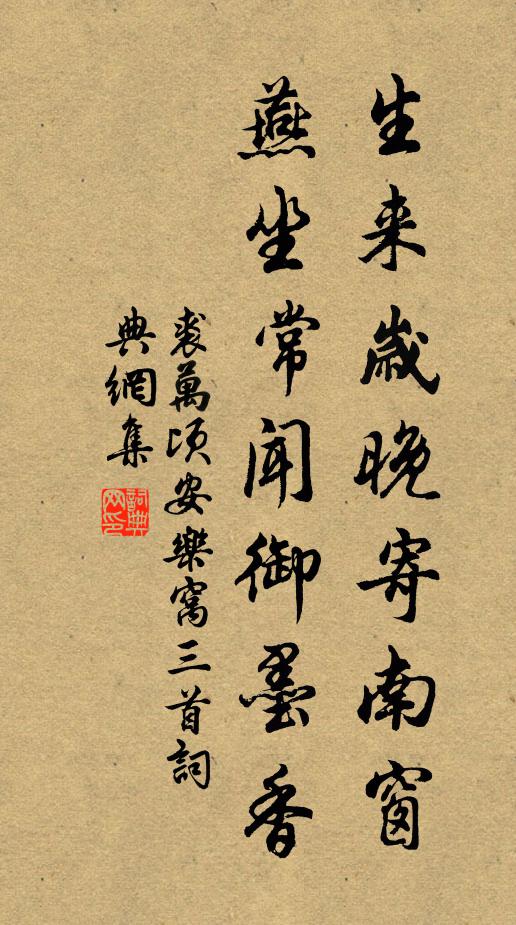 生来歲晚寄南窗
燕坐常聞御墨香
裘萬頃安樂窩三首詞
典網集
詞典
网印